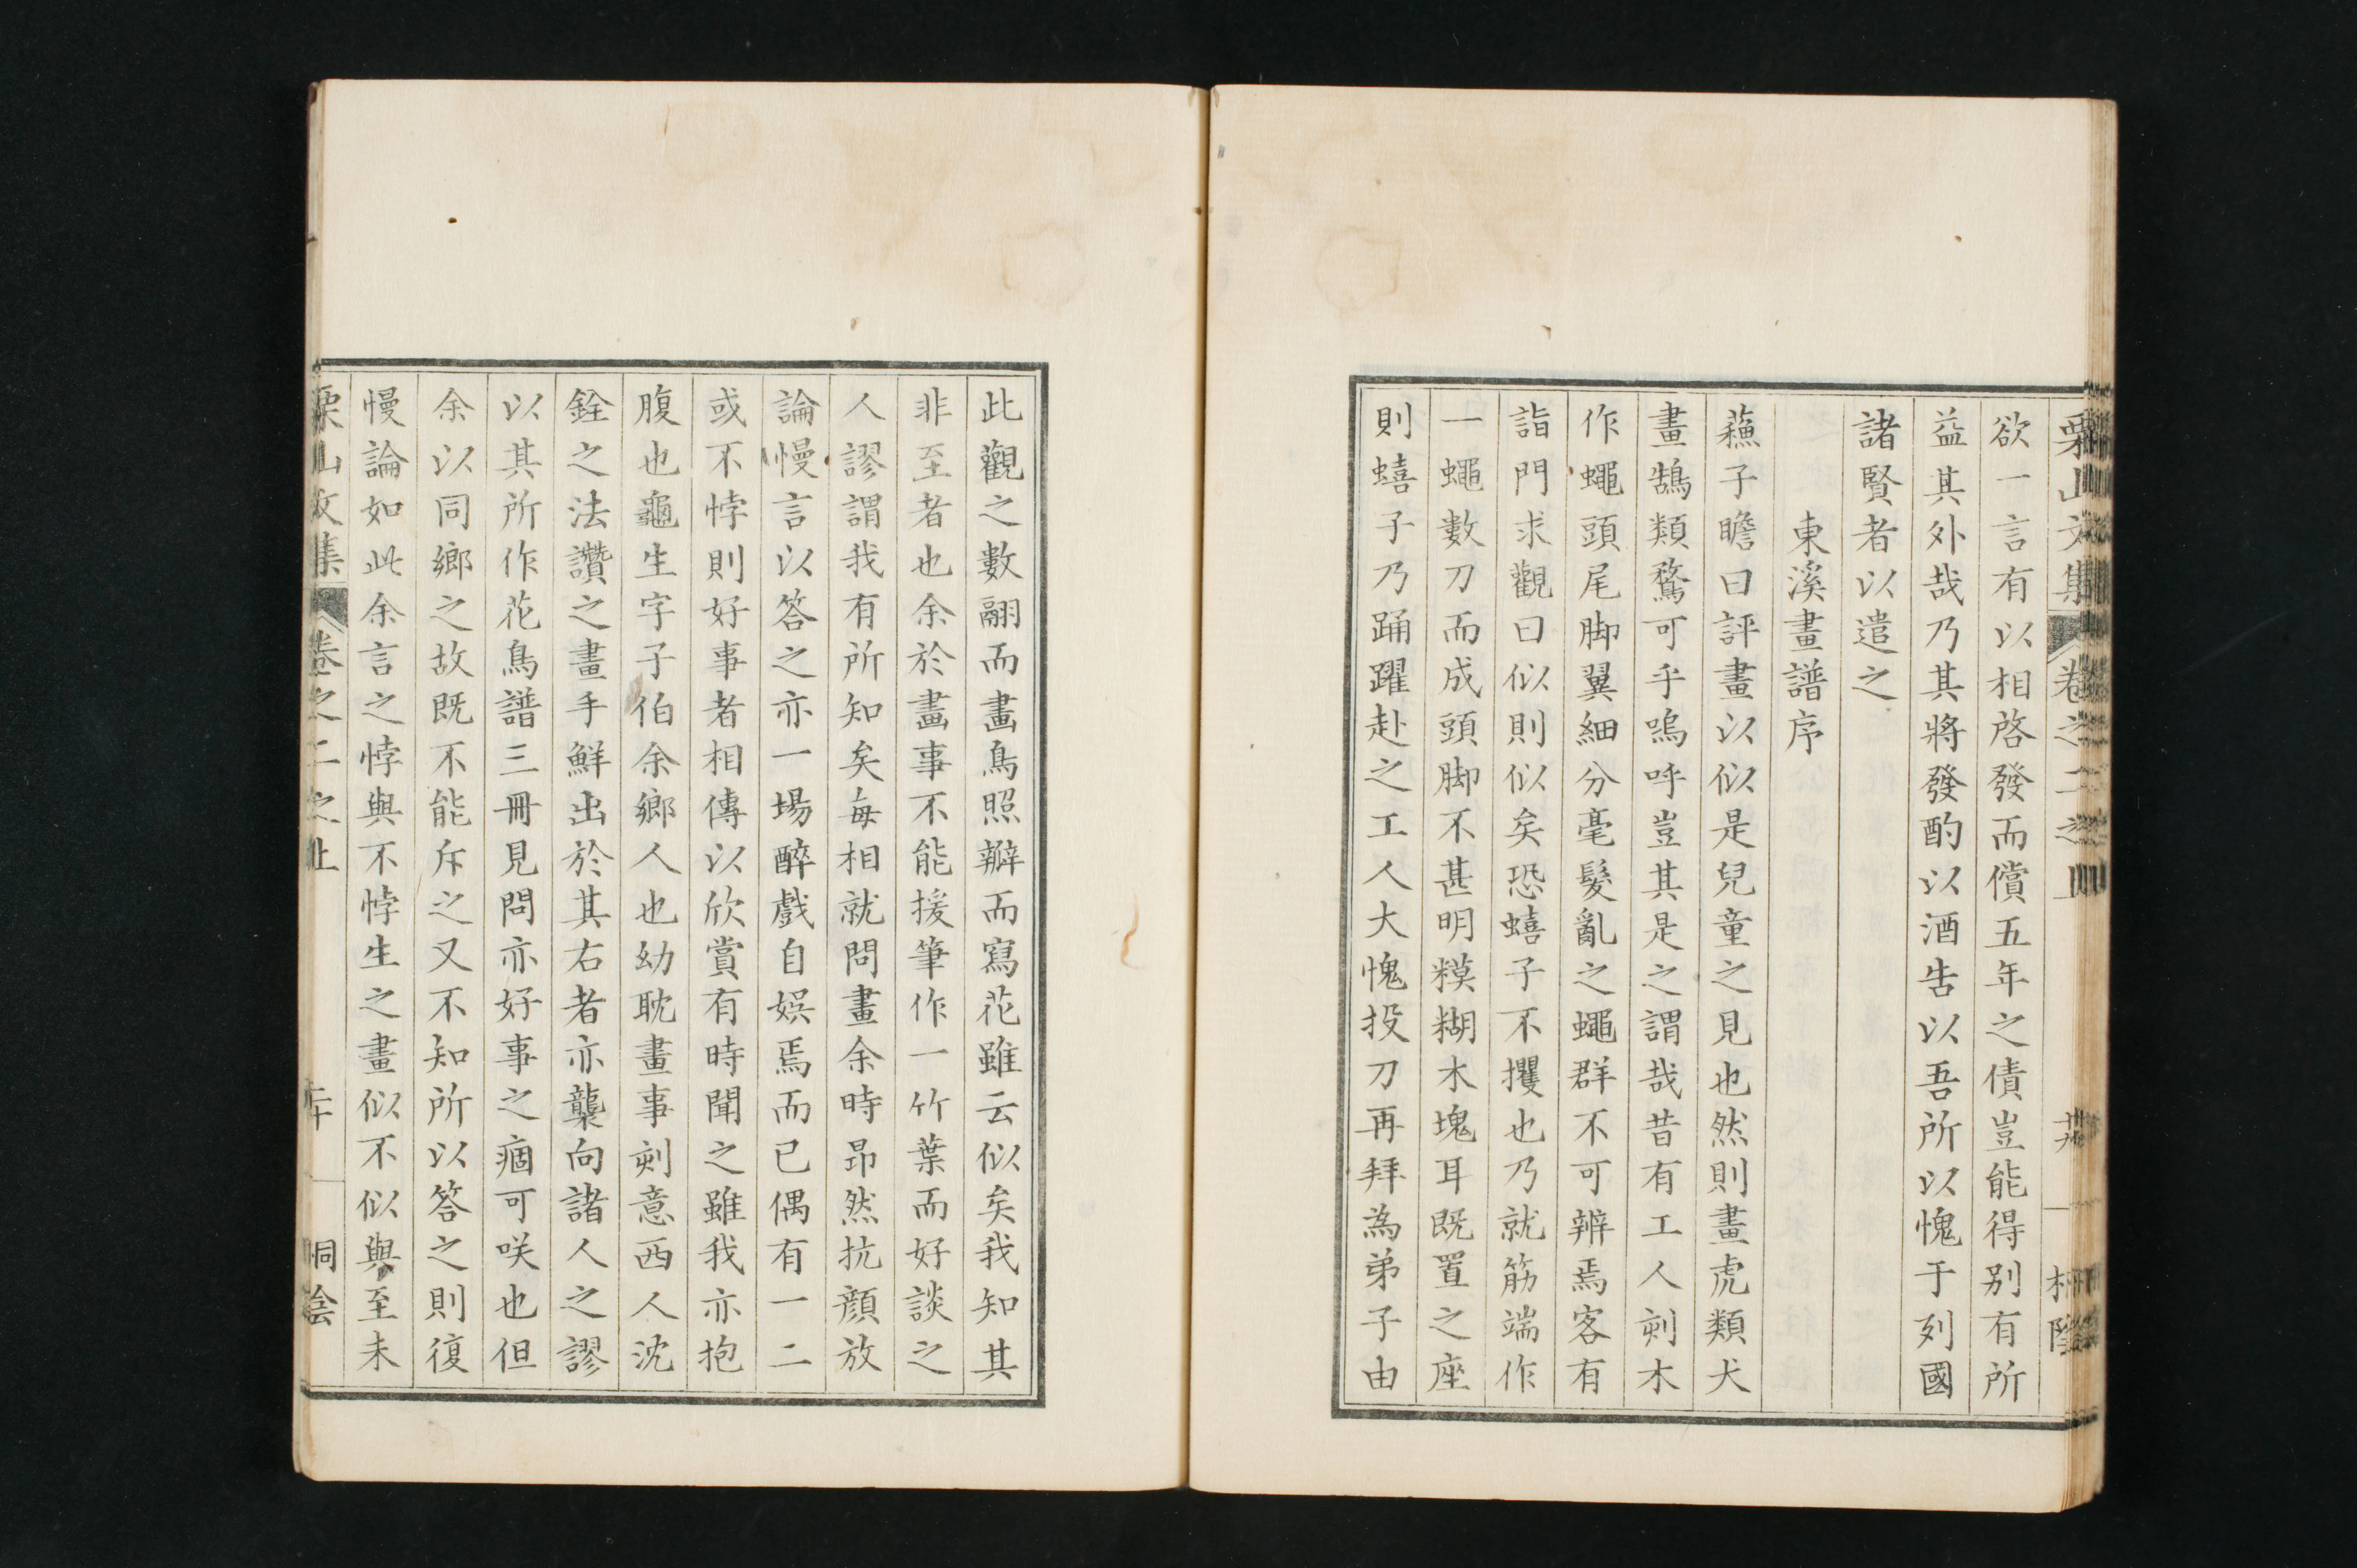 栗山文集 卷之二之上 桐陰
欲一言有以相啓發而償五年之債豈能得别有所
益其外哉乃其將發酌以酒告以吾所以愧于列國
諸賢者以遣之
東溪畫譜序
蘓子瞻曰評畫以似是兒童之見也然則畫虎類犬
畫鵠類鶩可乎嗚呼豈其是之謂哉昔有工人刻木
作蠅頭尾脚翼細分毫髮亂之蠅群不可辨焉客有
詣門求觀曰似則似矣恐蟢子不攫也乃就筋端作
一蠅數刀而成頭脚不甚明糢糊木塊耳既置之座
則蟢子乃踊躍赴之工人大愧投刀再拜為弟子由
此觀之數翮而畫鳥照辦而寫花雖云似矣我知其
非至者也余於畫事不能援筆作一竹葉而好談之
人謬謂我有所知矣每相就問畫余時昂然抗顔放
論慢言以答之亦一場醉戲自娯焉而已偶有一二
或不悖則好事者相傳以欣賞有時聞之雖我亦抱
腹也龜生字子伯余鄉人也幼耽畫事刻意西人沈
銓之法讚之畫手鮮出於其右者亦襲向諸人之謬
以其所作花鳥譜三冊見問亦好事之痼可咲也但
余以同鄉之故既不能斥之又不知所以答之則復
慢論如此余言之悖與不悖生之畫似不似與至未
栗山文集 卷之二之上 三十 桐陰